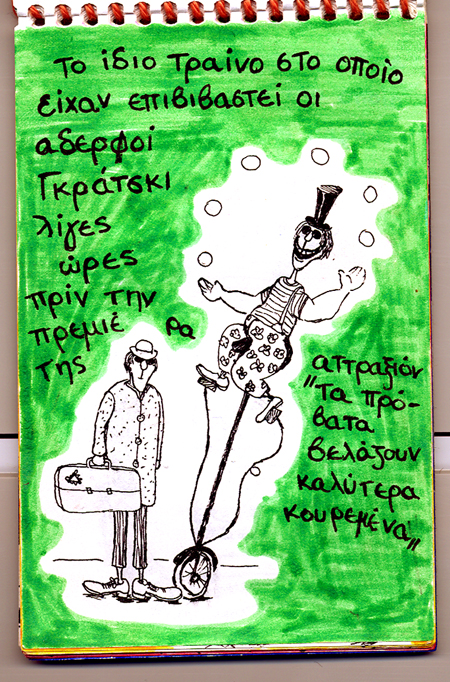 Το ίδιο τραίνο στο οποίο
είχαν επιβιβαστεί οι
αδερφοί
Γκράτσκι
λίγες
ώρες
πρίν την
πρεμιέ ρα
της
ατραξιόν
"Τα πρό-
βατα
βελάζουν
καλύτερα
κουρεμένα"